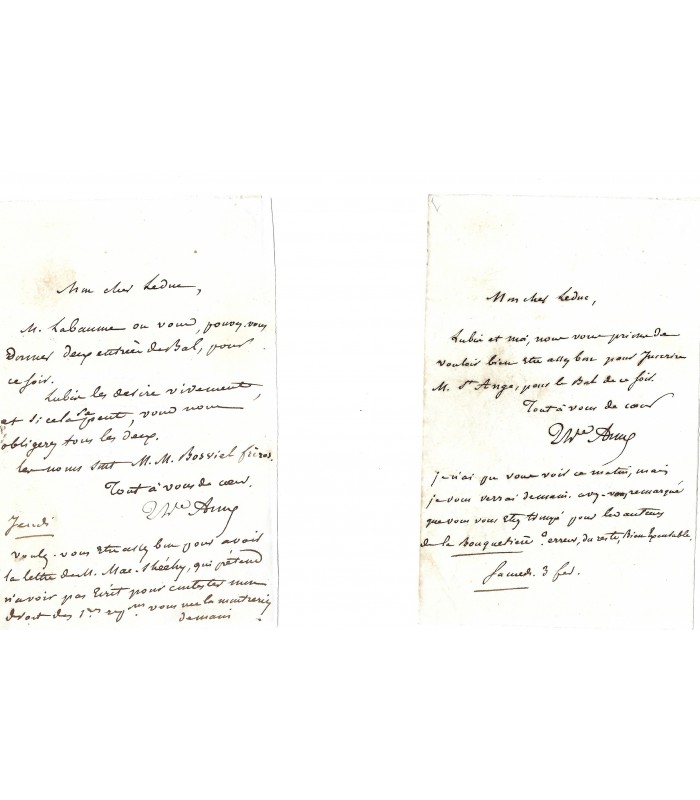 Mon cher Leduc,
M. Labaume ou vous, pouvez-vous
donner deux entrées de Bal, pour
ce soir.
Lubin les désire vivement,
et si cela se peut, vous nous
obligerez tous les deux.
les noms sont M. M. Bosviel frères.
Tout à vous de cœur.
Jeudi
voulez-vous être assez bon pour avoir
la lettre de M. Mac-Shéehy, qui prétend
n'avoir pas écrit pour contester mon
droit des 1ères vous me la montrerez
demain
Mon cher Leduc,
Lubin et moi, nous vous prions de
vouloir bien être assez bon pour Inscrire
M. St Ange, pour le Bal de ce soir.
Tout à vous de cœur
Je n'ai pu vous voir ce matin, mais
je vous verrai demain. avez-vous remarqué
que vous vous etes trompé pour les auteurs
de la Bouquetière erreur, du reste, Bien Excusable.
Samedi 3 fev.